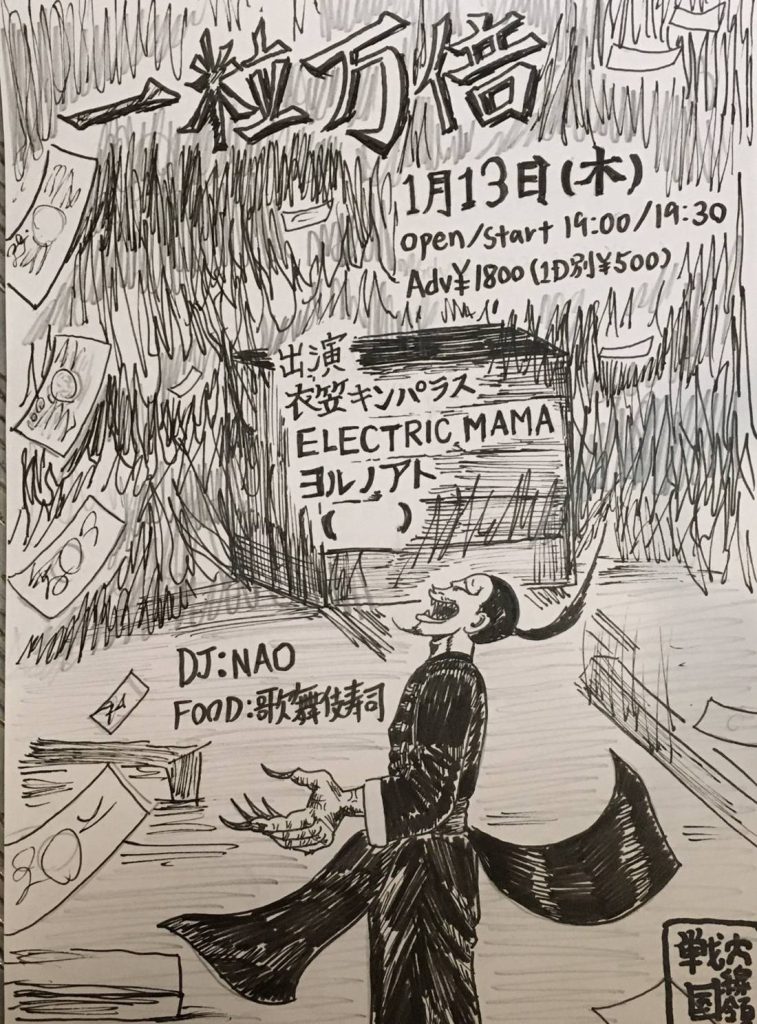 一粒万倍
1月13日(木)
open/start 19:00/19:30
Adv¥1800(1D別¥500)
出演
衣笠キンパラス
ELECTRIC MAMA
ヨルノアト
(　　)
DJ:NAO
FOOD:歌舞伎寿司
戦国
大統領